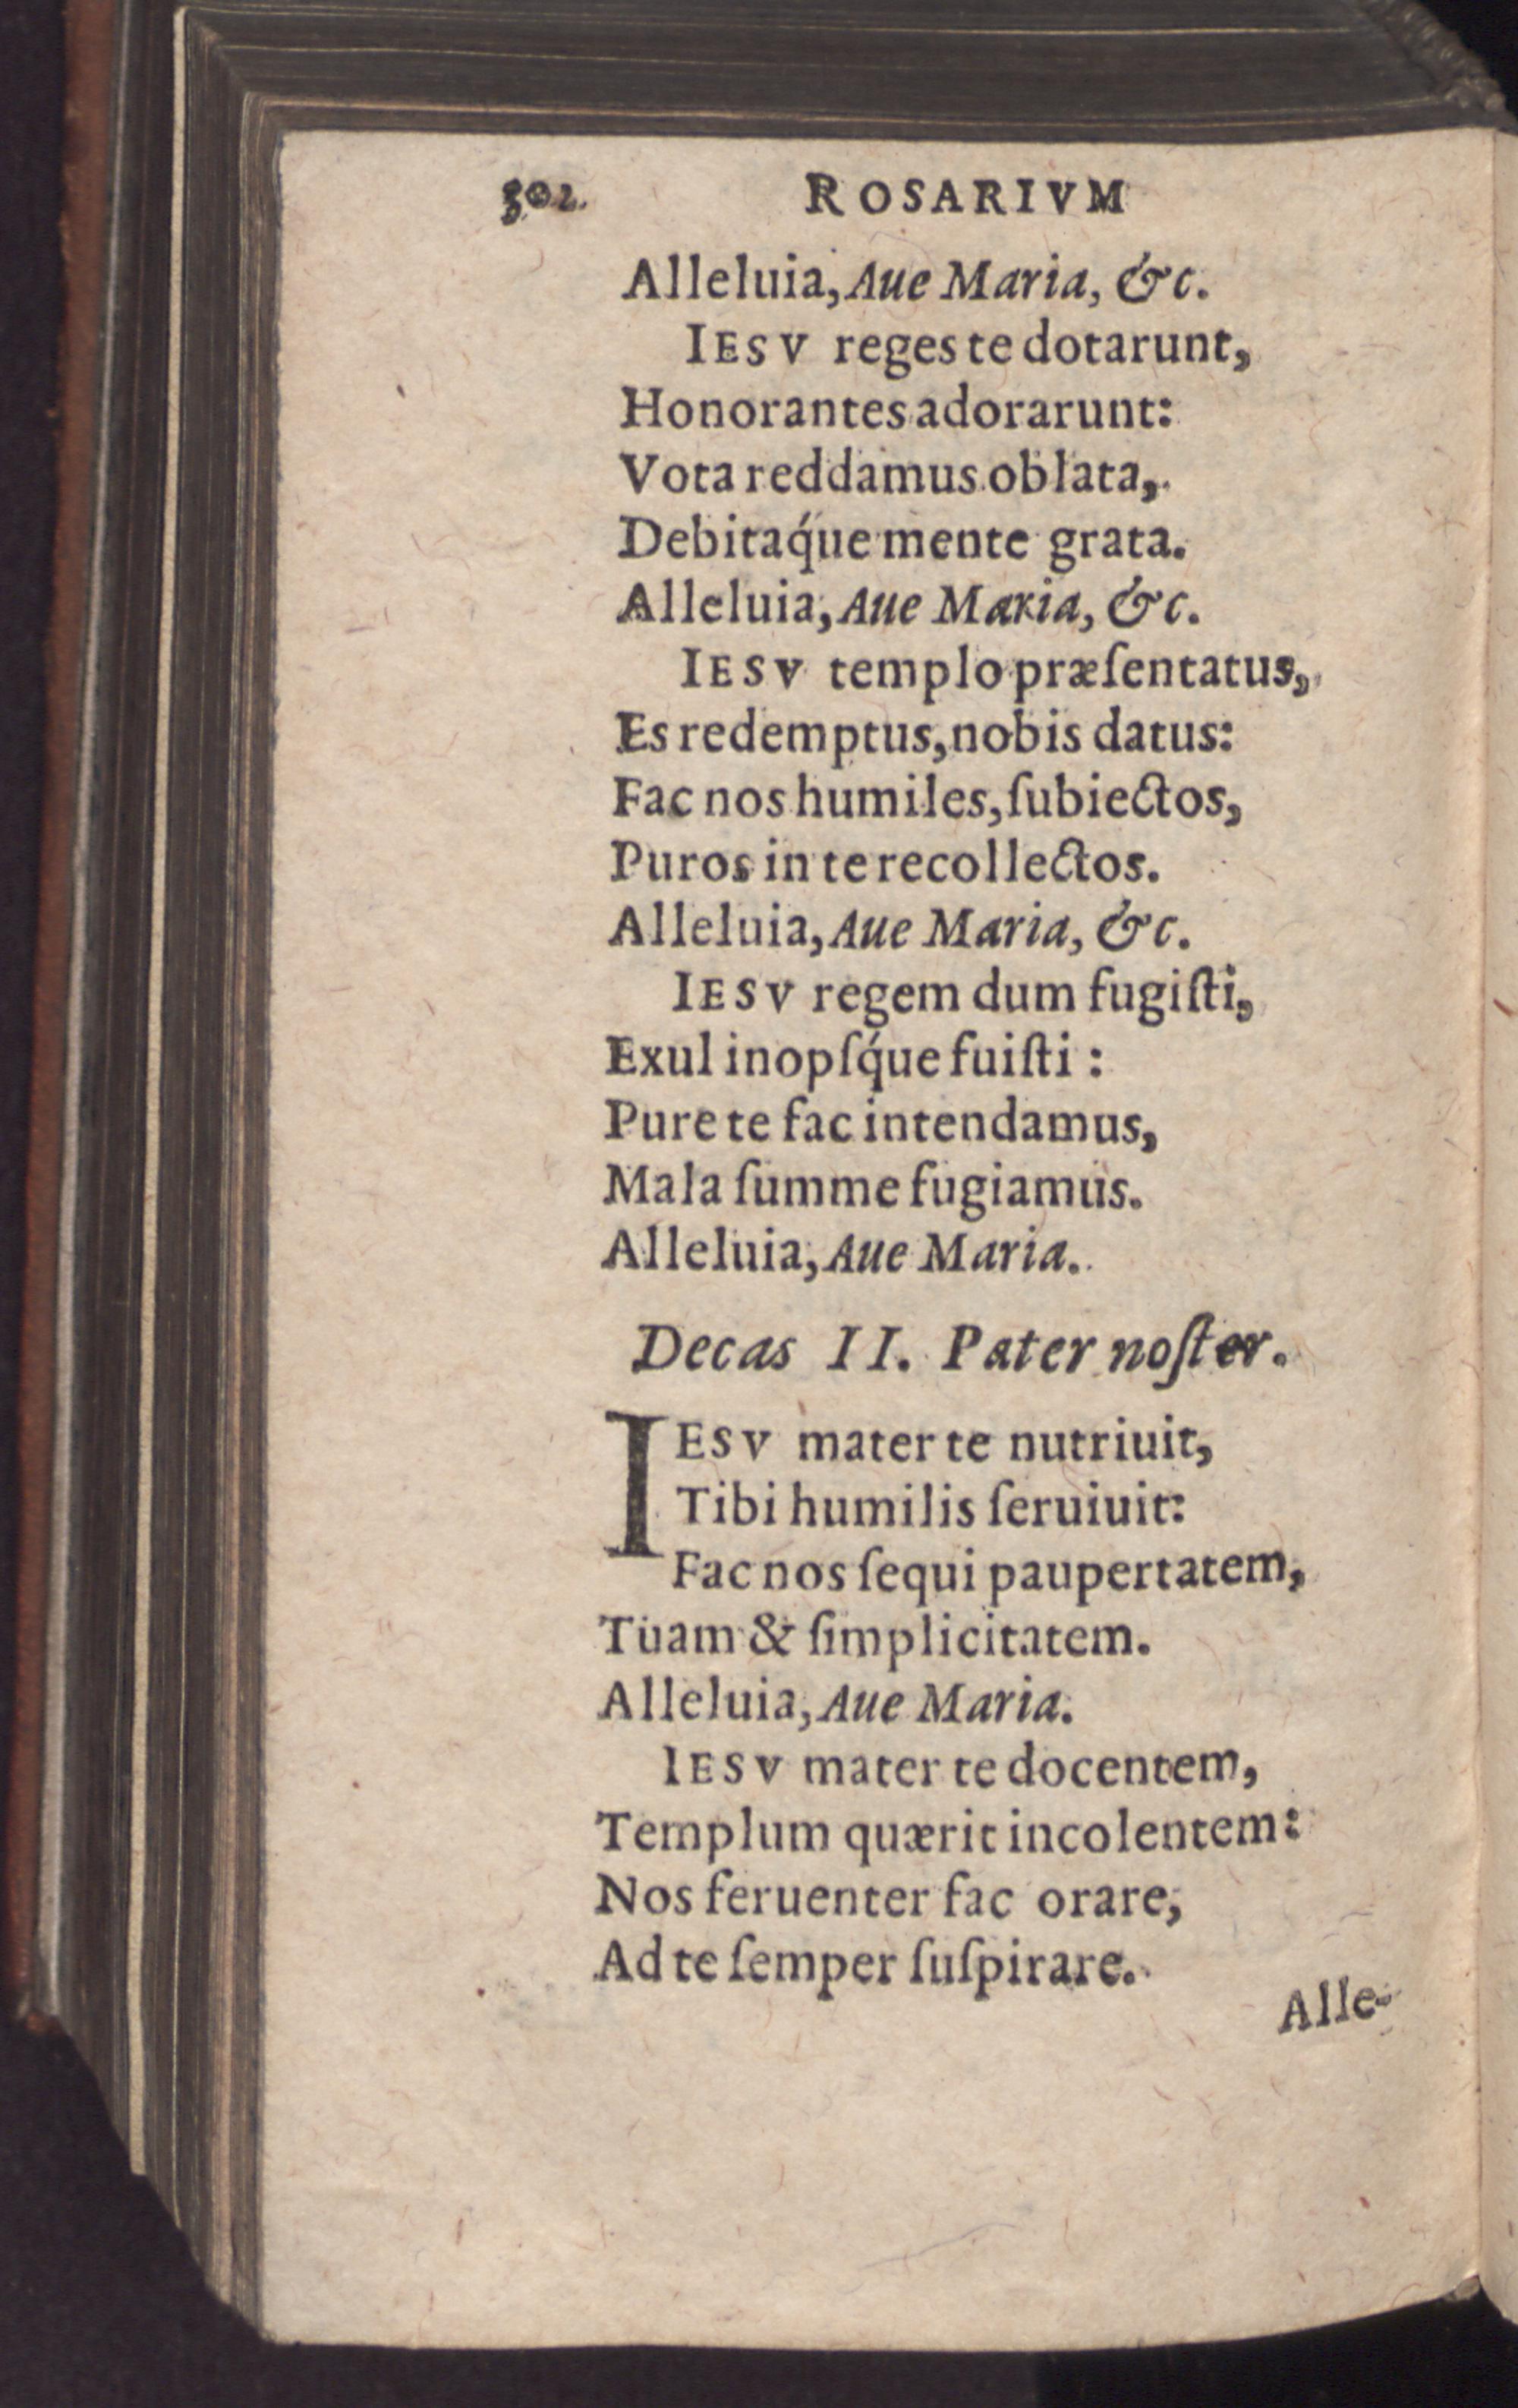 302. ROSARIVM
Alleluia, Aue Maria, &c.
IESV reges te dotarunt,
Honorantes adorarunt:
Vota reddamus oblata,
Debitaq́ue mente grata.
Alleluia, Aue Maria, &c.
IESV templo præſentatus,
Es redemptus, nobis datus:
Fac nos humiles, ſubiectos,
Puros in te recollectos.
Alleluia, Aue Maria, &c.
IESV regem dum fugiſti,
Exul inopſq́ue fuiſti:
Pure te fac intendamus,
Mala ſumme fugiamus.
Alleluia, Aue Maria.
Decas II. Pater noſter.
IESV mater te nutriuit,
Tibi humilis ſeruiuit:
Fac nos ſequi paupertatem,
Tuam & ſimplicitatem.
Alleluia, Aue Maria.
IESV mater te docentem,
Templum quærit incolentem:
Nos feruenter fac orare,
Ad te ſemper ſuſpirare.
Alle-